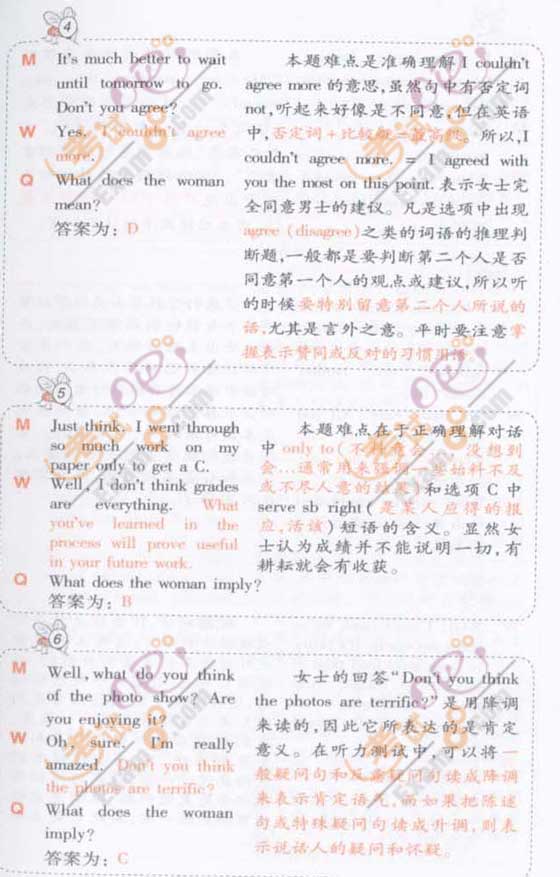 4
M It's much better to wait
until tomorrow to go.
Don't you agree?
W Yes. I couldn't agree
more.
Q What does the woman
mean?
答案为：D
本题难点是准确理解 I couldn't
agree more 的意思,虽然句中有否定词
not,听起来好像是不同意,但在英语
中,否定词+比较级=最高级。所以,I
couldn't agree more. = I agreed with
you the most on this point. 表示女士完
全同意男士的建议。凡是选项中出现
agree (disagree)之类的词语的推理判
断题,一般都是要判断第二个人是否
同意第一个人的观点或建议,所以听
的时候要特别留意第二个人所说的
话,尤其是言外之意。平时要注意掌
握表示赞同或反对的习惯用语。
5
M Just think. I went through
so much work on my
paper only to get a C.
W Well, I don't think grades
are everything. What
you've learned in the
process will prove useful
in your future work.
Q What does the woman imply?
答案为：B
本题难点在于正确理解对话
中 only to(不料竟会… 没想到
会…通常用来强调一些始料不及
或不尽人意的)和选项 C 中
serve sb right(是某人应得的报
应,活该)短语的含义。显然女
士认为成绩并不能说明一切,有
耕耘就会有收获。
6
M Well, what do you think
of the photo show? Are
you enjoying it?
W Oh, sure. I'm really
amazed. Don't you think
the photos are terrific?
Q What does the woman
imply?
答案为：C
女士的回答“Don't you think
the photos are terrific?”是用降调
来读的,因此它所表达的是肯定
意义。在听力测试中,可以将一
般疑问句和反意疑问句读成降调
来表示肯定语气,而如果把陈述
句或特殊疑问句读成升调,则表
示说话人的疑问和怀疑。